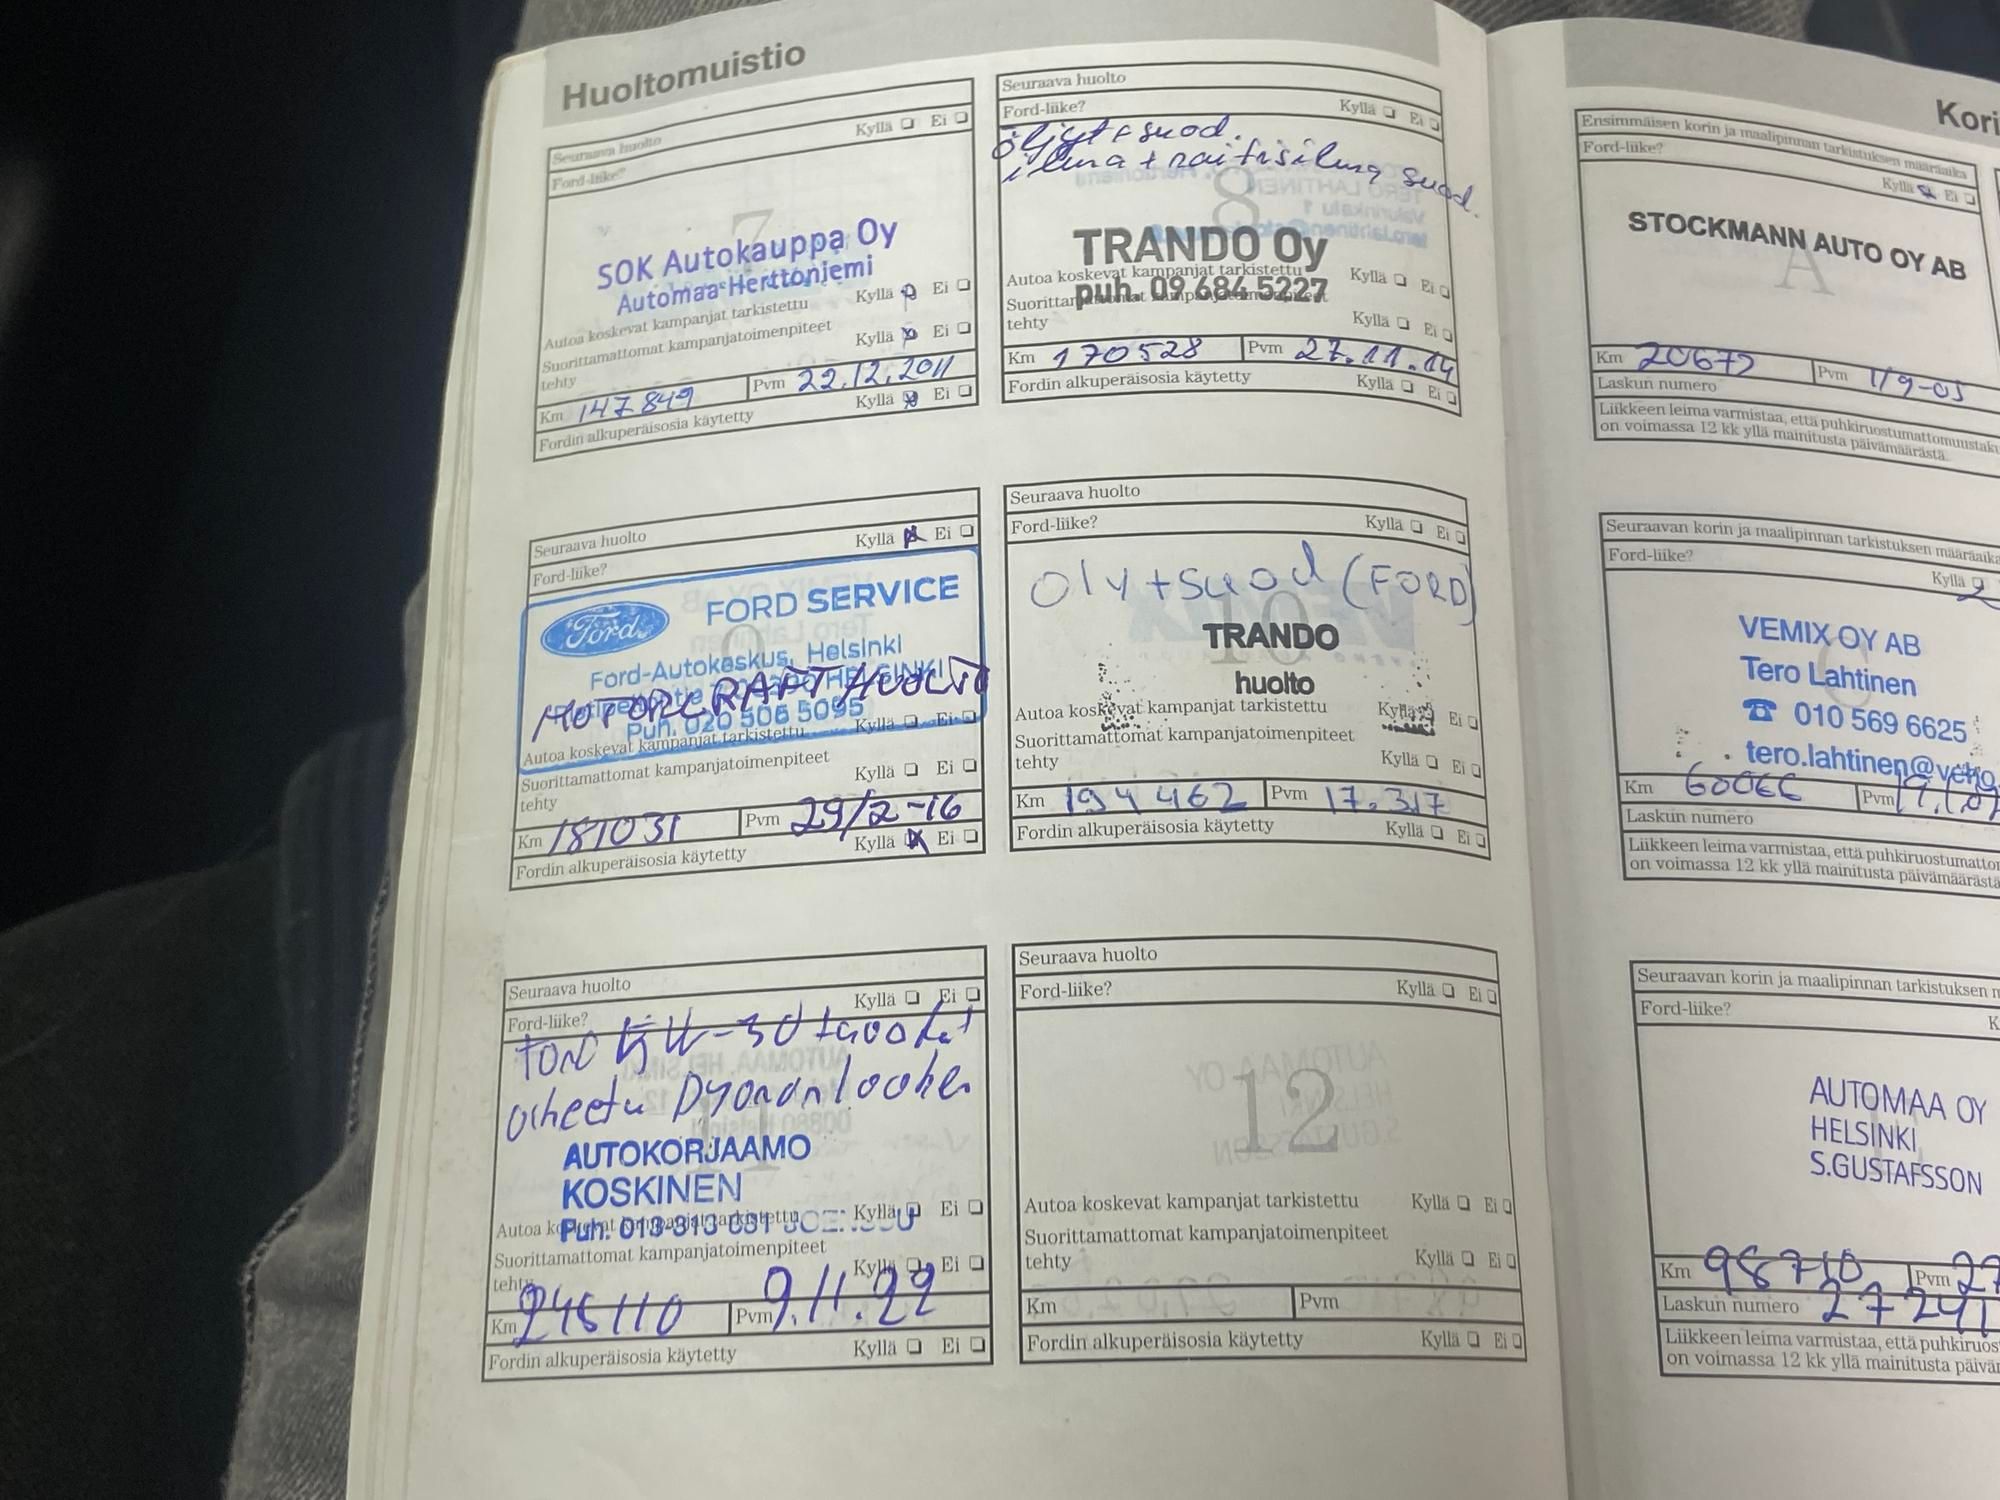 Huoltomuistio
Seuraava huolto
Ford-liike? Kyllä ❏ Ei ❏
7
SOK Autokauppa Oy
Automaa-Herttoniemi
Autoa koskevat kampanjat tarkistettu Kyllä ❏ Ei ❏
Suorittamattomat kampanjatoimenpiteet
tehty Kyllä ❏ Ei ❏
Km 147849 Pvm 22.12.2011
Fordin alkuperäisosia käytetty Kyllä ❏ Ei ❏
Seuraava huolto
Ford-liike? Kyllä ❏ Ei ❏
öljyt + suod.
ilma + raitisilma suod.
8
TRANDO Oy
Autoa koskevat kampanjat tarkistettu Kyllä ❏ Ei ❏
puh. 09 684 5227
tehty Kyllä ❏ Ei ❏
Km 170528 Pvm 27.11.14
Fordin alkuperäisosia käytetty Kyllä ❏ Ei ❏
Seuraava huolto
Ford-liike? Kyllä ❏ Ei ❏
Ford FORD SERVICE
Ford-Autokeskus, Helsinki
MOTORCRAFT HUOLTO
Puh. 020 506 5095
Autoa koskevat kampanjat tarkistettu Kyllä ❏ Ei ❏
Suorittamattomat kampanjatoimenpiteet
tehty Kyllä ❏ Ei ❏
Km 181031 Pvm 29/2-16
Fordin alkuperäisosia käytetty Kyllä ❏ Ei ❏
Seuraava huolto
Ford-liike? Kyllä ❏ Ei ❏
Oly+suod (FORD)
10
TRANDO
huolto
Autoa koskevat kampanjat tarkistettu Kyllä ❏ Ei ❏
Suorittamattomat kampanjatoimenpiteet
tehty Kyllä ❏ Ei ❏
Km 194462 Pvm 17.3.17
Fordin alkuperäisosia käytetty Kyllä ❏ Ei ❏
Seuraava huolto
Ford-liike? Kyllä ❏ Ei ❏
11
AUTOKORJAAMO
KOSKINEN
Puh. 013-313 JOENSUU
Suorittamattomat kampanjatoimenpiteet
tehty Kyllä ❏ Ei ❏
Km 246110 Pvm 9.11.22
Fordin alkuperäisosia käytetty Kyllä ❏ Ei ❏
Seuraava huolto
Ford-liike? Kyllä ❏ Ei ❏
12
Autoa koskevat kampanjat tarkistettu Kyllä ❏ Ei ❏
Suorittamattomat kampanjatoimenpiteet
tehty Kyllä ❏ Ei ❏
Km Pvm
Fordin alkuperäisosia käytetty Kyllä ❏ Ei ❏
Kori
Ensimmäisen korin ja maalipinnan tarkistuksen määräaika
Ford-liike? Kyllä ❏ Ei ❏
A
STOCKMANN AUTO OY AB
Km 20672 Pvm 1/9-05
Laskun numero
Liikkeen leima varmistaa, että puhkiruostumattomuustaku
on voimassa 12 kk yllä mainitusta päivämäärästä.
Seuraavan korin ja maalipinnan tarkistuksen määräaika
Ford-liike? Kyllä ❏
VEMIX OY AB
Tero Lahtinen
☎ 010 569 6625
tero.lahtinen@veho
Km 60066 Pvm
Laskun numero
Liikkeen leima varmistaa, että puhkiruostumattom
on voimassa 12 kk yllä mainitusta päivämäärästä
Seuraavan korin ja maalipinnan tarkistuksen m
Ford-liike? K
AUTOMAA OY
HELSINKI
S.GUSTAFSSON
Km 98710 Pvm 27
Laskun numero 27241
Liikkeen leima varmistaa, että puhkiruos
on voimassa 12 kk yllä mainitusta päivä